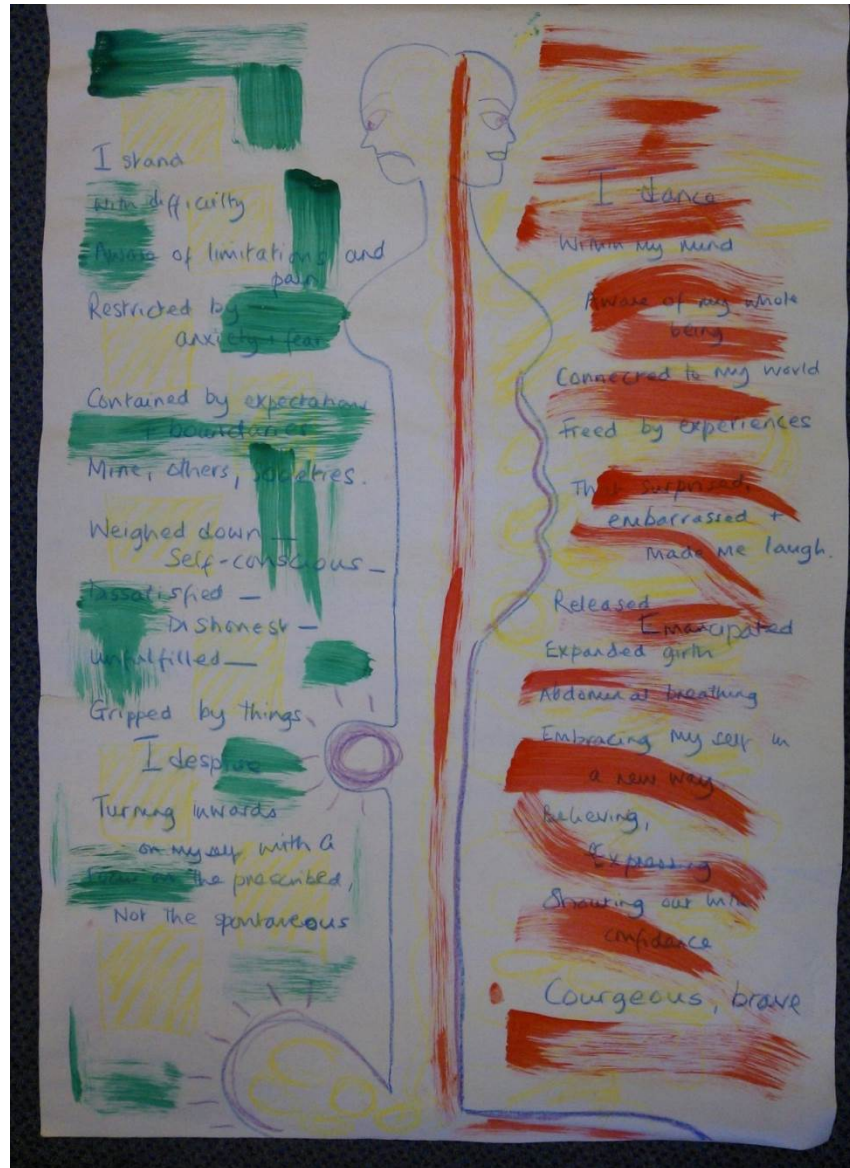 I stand
with difficulty
Aware of limitations and
pain
Restricted by
anxiety + fear
Contained by expectations
+ boundaries
Mine, others, societies.
Weighed down —
Self-conscious —
Dissatisfied —
Dishonest —
unfulfilled —
Gripped by things
I despise
Turning inwards
on my self with a
focus on the prescribed,
Not the spontaneous
I dance
Within my mind
Aware of my whole
being
Connected to my world
Freed by experiences
That surprised,
embarrassed +
made me laugh.
Released
Emancipated
Expanded girth
Abdominal breathing
Embracing my self in
a new way
Believing,
Expressing
Shouting out with
confidence
Courgeous, brave